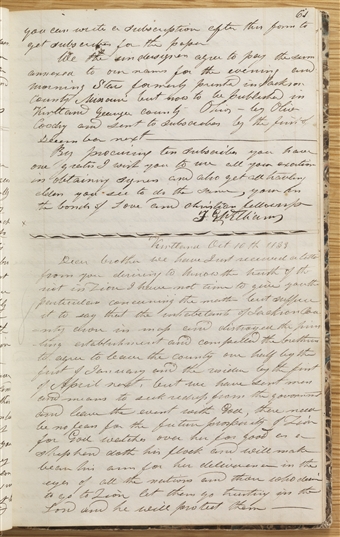 61
you can write a subscription after this form to
get subscribers for the paper
We the undersigned agree to pay the sum
annexed to our names for the evening and
morning Star formerly printed in Jackson
County Missouri but now to be published in
Kirtland Geauga county Ohio by Oliver
Cowdry and sent to subscribers by the first of
December next
By procuring ten subscribers you have
one gratis I wish you to use all your exertion
in obtaining signers and also get all traveling
elders you see to do the same yours in
the bonds of Love and christian fellowship
F G Williams
Kirtland Oct 10th 1833
Dear brother we have just received a letter
from you desiring to know the truth of the
riot in Zion I have not time to give you the
particulars concerning the matter but suffice
it to say that the inhabitants of Jackson Co
unty dove in mob and distroyed the prin
ting establishment and compelled the brethren
to agree to leave the county one half by the
first of January and the residue by the first
of April next but we have sent men
and means to seek redress from the governor
and leave the event with God, there need
be no fear for the future prosperity of Zion
for God watches over her for good as a
shepherd doth his flock and will make
bear his arm for her deliverence in the
eyes of all the nations and those who desire
to go to Zion let them go trusting in the
Lord and he will protect them